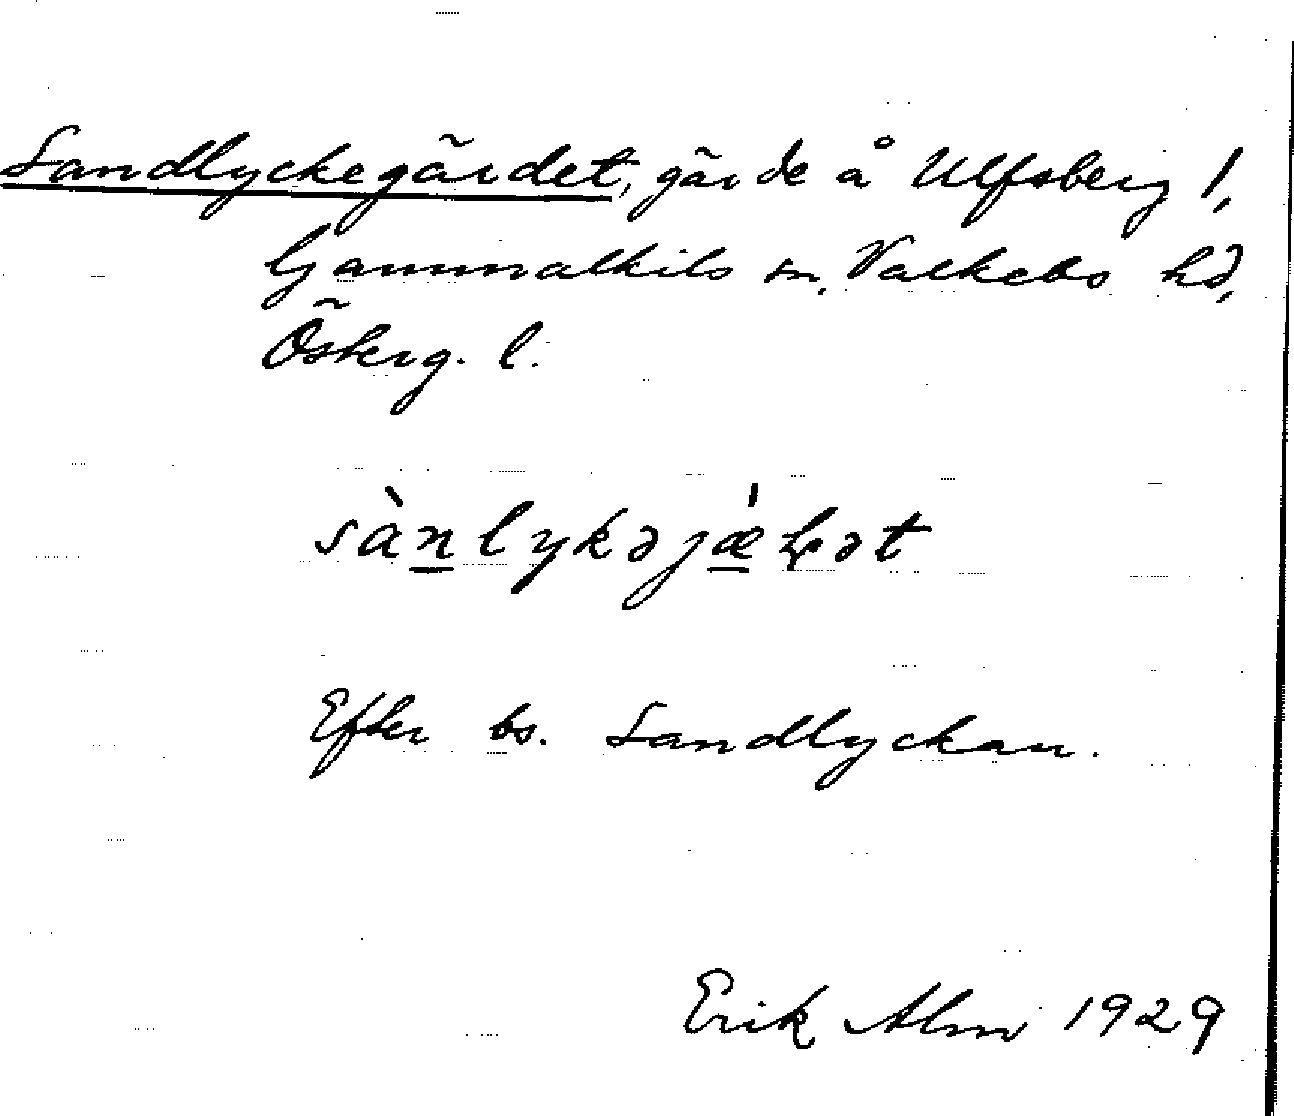 Sandlyckegärdet, gärde å Ulfsberg 1,
Gammalkils sn, Valkebo hd,
Österg. l.
sànlykəjæ̀ḷət
Efter bs. Sandlyckan.
Erik Alm 1929